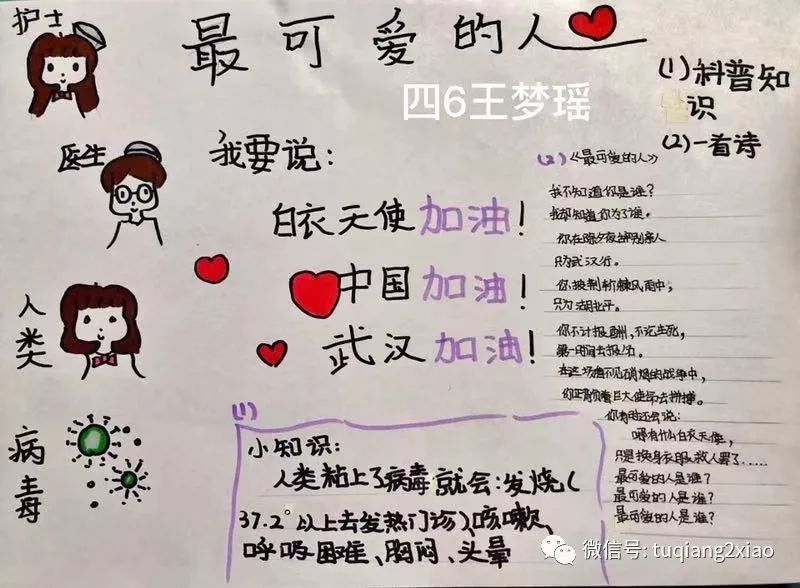 护士
最可爱的人
四6王梦瑶
(1)科普知
识
(2)一首诗
医生
我要说:
白衣天使加油!
中国加油!
武汉加油!
人类
病毒
(2)《最可爱的人》
我不知道你是谁?
我却知道你为了谁。
你在除夕夜辞别亲人
只为武汉行。
你披荆斩棘风雨中,
只为湖北平。
你不计报酬,不论生死,
第一时间去报名。
在这场看不见硝烟的战争中,
你正背负着巨大使命去拼搏。
你有时还会说:
哪有什么白衣天使,
只是换身衣服救人罢了......
最可爱的人是谁?
最可爱的人是谁?
最可爱的人是谁?
(1)
小知识:
人类粘上了病毒就会:发烧(
37.2°以上去发热门诊)、咳嗽、
呼吸困难、胸闷、头晕
微信号: tuqiang2xiao